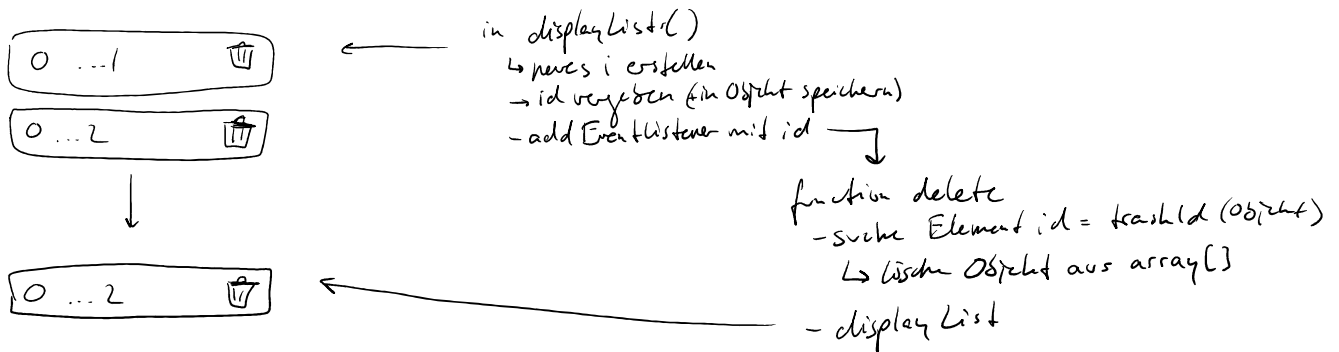 in displayLists()
↳ neues i erstellen
→ id vergeben (+in Objekt speichern)
- add EventListener mit id
O ...1
O ...2
function delete
- suche Element id = trashId (Objekt)
↳ lösche Objekt aus array[]
- displayList
O ...2